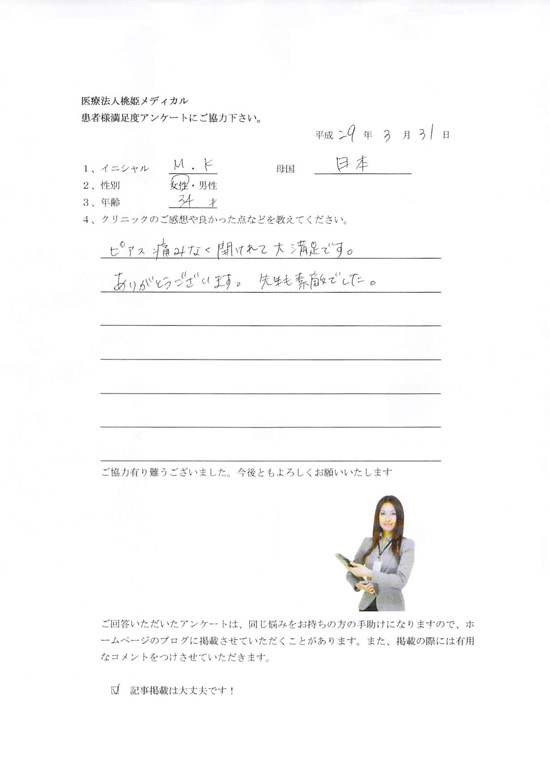 医療法人桃姫メディカル
患者様満足度アンケートにご協力下さい。
平成 29 年 3 月 31 日
1、イニシャル M.K 母国 日本
2、性別 女性・男性
3、年齢 34 才
4、クリニックのご感想や良かった点などを教えてください。
ピアス痛みなく開けれて大満足です。
ありがとうございます。 先生も素敵でした。
ご協力有り難うございました。今後ともよろしくお願いいたします
ご回答いただいたアンケートは、同じ悩みをお持ちの方の手助けになりますので、ホ
ームページのブログに掲載させていただくことがあります。また、掲載の際には有用
なコメントをつけさせていただきます。
☑ 記事掲載は大丈夫です！